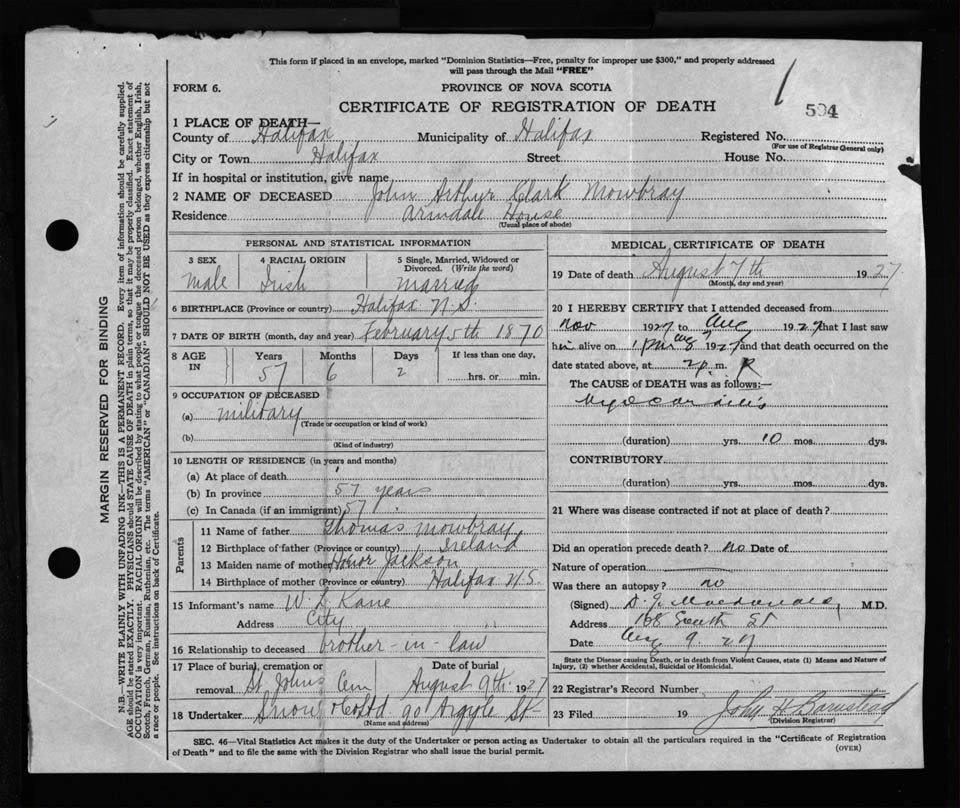 This form if placed in an envelope, marked "Dominion Statistics—Free, penalty for improper use $300," and properly addressed
will pass through the Mail "FREE"
FORM 6.
PROVINCE OF NOVA SCOTIA
CERTIFICATE OF REGISTRATION OF DEATH
1
504
1 PLACE OF DEATH—
County of Halifax Municipality of Halifax Registered No.
(For use of Registrar General only)
City or Town Halifax Street House No.
If in hospital or institution, give name
2 NAME OF DECEASED John Arthur Clark Mowbray
Residence Armdale House
(Usual place of abode)
MARGIN RESERVED FOR BINDING
N.B.—WRITE PLAINLY WITH UNFADING INK—THIS IS A PERMANENT RECORD. Every item of information should be carefully supplied.
AGE should be stated EXACTLY. PHYSICIANS should STATE CAUSE OF DEATH in plain terms, so that it may be properly classified. Exact statement of
OCCUPATION is very important. RACIAL ORIGIN will be described by stating to what people or tongue the deceased person belonged, whether English, Irish,
Scotch, French, German, Russian, Ruthenian, etc. The terms "AMERICAN" or "CANADIAN" SHOULD NOT BE USED as they express citizenship but not
a race or people. See instructions on back of Certificate.
PERSONAL AND STATISTICAL INFORMATION
3 SEX
male
4 RACIAL ORIGIN
Irish
5 Single, Married, Widowed or
Divorced. (Write the word)
married
6 BIRTHPLACE (Province or country) Halifax N.S.
7 DATE OF BIRTH (month, day and year) February 5th 1870
8 AGE IN
Years 57
Months 6
Days 2
If less than one day,
hrs. or min.
9 OCCUPATION OF DECEASED
(a) military
(Trade or occupation or kind of work)
(b)
(Kind of industry)
10 LENGTH OF RESIDENCE (in years and months)
(a) At place of death
(b) In province 57 years
(c) In Canada (if an immigrant) 57
Parents
11 Name of father Thomas Mowbray
12 Birthplace of father (Province or country) Ireland
13 Maiden name of mother Honor Jackson
14 Birthplace of mother (Province or country) Halifax N.S.
15 Informant's name W L Kane
Address City
16 Relationship to deceased brother-in-law
17 Place of burial, cremation or
removal St Johns Cem
Date of burial
August 9th 1927
18 Undertaker Snow & Co Ltd 90 Argyle St
(Name and address)
MEDICAL CERTIFICATE OF DEATH
19 Date of death August 7th 1927
(Month, day and year)
20 I HEREBY CERTIFY that I attended deceased from
Nov 1927 to Aug 1927 that I last saw
him alive on 1 pm Aug 7 1927 and that death occurred on the
date stated above, at 2 p. m.
The CAUSE of DEATH was as follows:—
Myocarditis
(duration) yrs. 10 mos. dys.
CONTRIBUTORY
(duration) yrs. mos. dys.
21 Where was disease contracted if not at place of death?
Did an operation precede death? no Date of
Nature of operation
Was there an autopsy? no
(Signed) Macdonald M.D.
Address 168 South St
Date Aug 9 27
State the Disease causing Death, or in death from Violent Causes, state (1) Means and Nature of
Injury, (2) whether Accidental, Suicidal or Homicidal.
22 Registrar's Record Number
23 Filed 19 John H Barnstead
(Division Registrar)
SEC. 46—Vital Statistics Act makes it the duty of the Undertaker or person acting as Undertaker to obtain all the particulars required in the "Certificate of Registration
of Death" and to file the same with the Division Registrar who shall issue the burial permit.
(OVER)